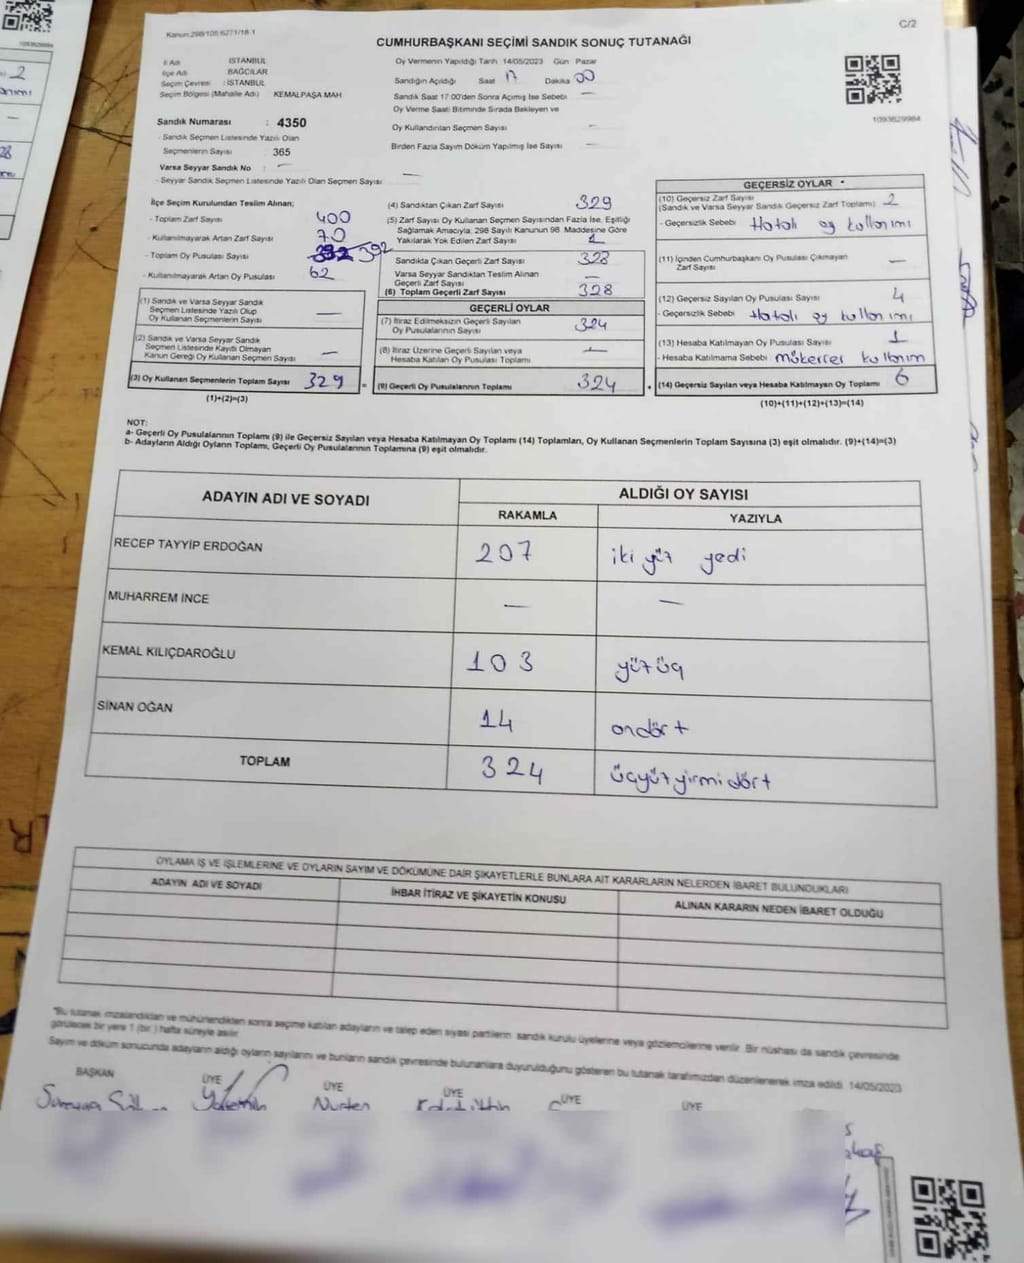 Kanun:298/105,6271/18-1
C/2
CUMHURBAŞKANI SEÇİMİ SANDIK SONUÇ TUTANAĞI
İl Adı : İSTANBUL
İlçe Adı : BAĞCILAR
Seçim Çevresi : İSTANBUL
Seçim Bölgesi (Mahalle Adı) KEMALPAŞA MAH.
Sandık Numarası : 4350
- Sandık Seçmen Listesinde Yazılı Olan
Seçmenlerin Sayısı : 365
Varsa Seyyar Sandık No : —
- Seyyar Sandık Seçmen Listesinde Yazılı Olan Seçmen Sayısı : —
Oy Vermenin Yapıldığı Tarih 14/05/2023 Gün Pazar
Sandığın Açıldığı Saat 17 Dakika 00
Sandık Saat 17:00'den Sonra Açılmış İse Sebebi —
Oy Verme Saati Bitiminde Sırada Bekleyen ve
Oy Kullandırılan Seçmen Sayısı —
Birden Fazla Sayım Döküm Yapılmış İse Sayısı —
1093629984
İlçe Seçim Kurulundan Teslim Alınan;
- Toplam Zarf Sayısı 400
- Kullanılmayarak Artan Zarf Sayısı 70
- Toplam Oy Pusulası Sayısı 392
- Kullanılmayarak Artan Oy Pusulası 62
(1) Sandık ve Varsa Seyyar Sandık
Seçmen Listesinde Yazılı Olup
Oy Kullanan Seçmenlerin Sayısı —
(2) Sandık ve Varsa Seyyar Sandık
Seçmen Listesinde Kayıtlı Olmayan
Kanun Gereği Oy Kullanan Seçmen Sayısı —
(3) Oy Kullanan Seçmenlerin Toplam Sayısı 329
(1)+(2)=(3)
(4) Sandıktan Çıkan Zarf Sayısı 329
(5) Zarf Sayısı Oy Kullanan Seçmen Sayısından Fazla İse, Eşitliği
Sağlamak Amacıyla; 298 Sayılı Kanunun 98. Maddesine Göre
Yakılarak Yok Edilen Zarf Sayısı 1
Sandıkta Çıkan Geçerli Zarf Sayısı 328
Varsa Seyyar Sandıktan Teslim Alınan
Geçerli Zarf Sayısı —
(6) Toplam Geçerli Zarf Sayısı 328
GEÇERLİ OYLAR
(7) İtiraz Edilmeksizin Geçerli Sayılan
Oy Pusulalarının Sayısı 324
(8) İtiraz Üzerine Geçerli Sayılan veya
Hesaba Katılan Oy Pusulası Toplamı —
= (9) Geçerli Oy Pusulalarının Toplamı 324
GEÇERSİZ OYLAR
(10) Geçersiz Zarf Sayısı
(Sandık ve Varsa Seyyar Sandık Geçersiz Zarf Toplamı) 2
- Geçersizlik Sebebi Hatalı oy kullanımı
(11) İçinden Cumhurbaşkanı Oy Pusulası Çıkmayan
Zarf Sayısı —
(12) Geçersiz Sayılan Oy Pusulası Sayısı 4
- Geçersizlik Sebebi Hatalı oy kullanımı
(13) Hesaba Katılmayan Oy Sayısı 1
- Hesaba Katılmama Sebebi mükerrer kullanım
+ (14) Geçersiz Sayılan veya Hesaba Katılmayan Oy Toplamı 6
(10)+(11)+(12)+(13)=(14)
NOT:
a- Geçerli Oy Pusulalarının Toplamı (9) ile Geçersiz Sayılan veya Hesaba Katılmayan Oy Toplamı (14) Toplamları, Oy Kullanan Seçmenlerin Toplam Sayısına (3) eşit olmalıdır. (9)+(14)=(3)
b- Adayların Aldığı Oyların Toplamı, Geçerli Oy Pusulalarının Toplamına (9) eşit olmalıdır.
ADAYIN ADI VE SOYADI
ALDIĞI OY SAYISI
RAKAMLA YAZIYLA
RECEP TAYYİP ERDOĞAN 207 iki yüz yedi
MUHARREM İNCE — —
KEMAL KILIÇDAROĞLU 103 yüzüç
SİNAN OĞAN 14 ondört
TOPLAM 324 üçyüzyirmidört
OYLAMA İŞ VE İŞLEMLERİNE VE OYLARIN SAYIM VE DÖKÜMÜNE DAİR ŞİKAYETLERLE BUNLARA AİT KARARLARIN NELERDEN İBARET BULUNDUKLARI
ADAYIN ADI VE SOYADI İHBAR İTİRAZ VE ŞİKAYETİN KONUSU ALINAN KARARIN NEDEN İBARET OLDUĞU
*Bu tutanak imzalandıktan ve mühürlendikten sonra seçime katılan adayların ve talep eden siyasi partilerin sandık kurulu üyelerine veya gözlemcilerine verilir. Bir nüshası da sandık çevresinde
görülecek bir yere 1 (bir ) hafta süreyle asılır.
Sayım ve döküm sonucunda adayların aldığı oyların sayılarını ve bunların sandık çevresinde bulunanlara duyurulduğunu gösteren bu tutanak tarafımızdan düzenlenerek imza edildi. 14/05/2023
BAŞKAN ÜYE ÜYE ÜYE ÜYE ÜYE
Nurten